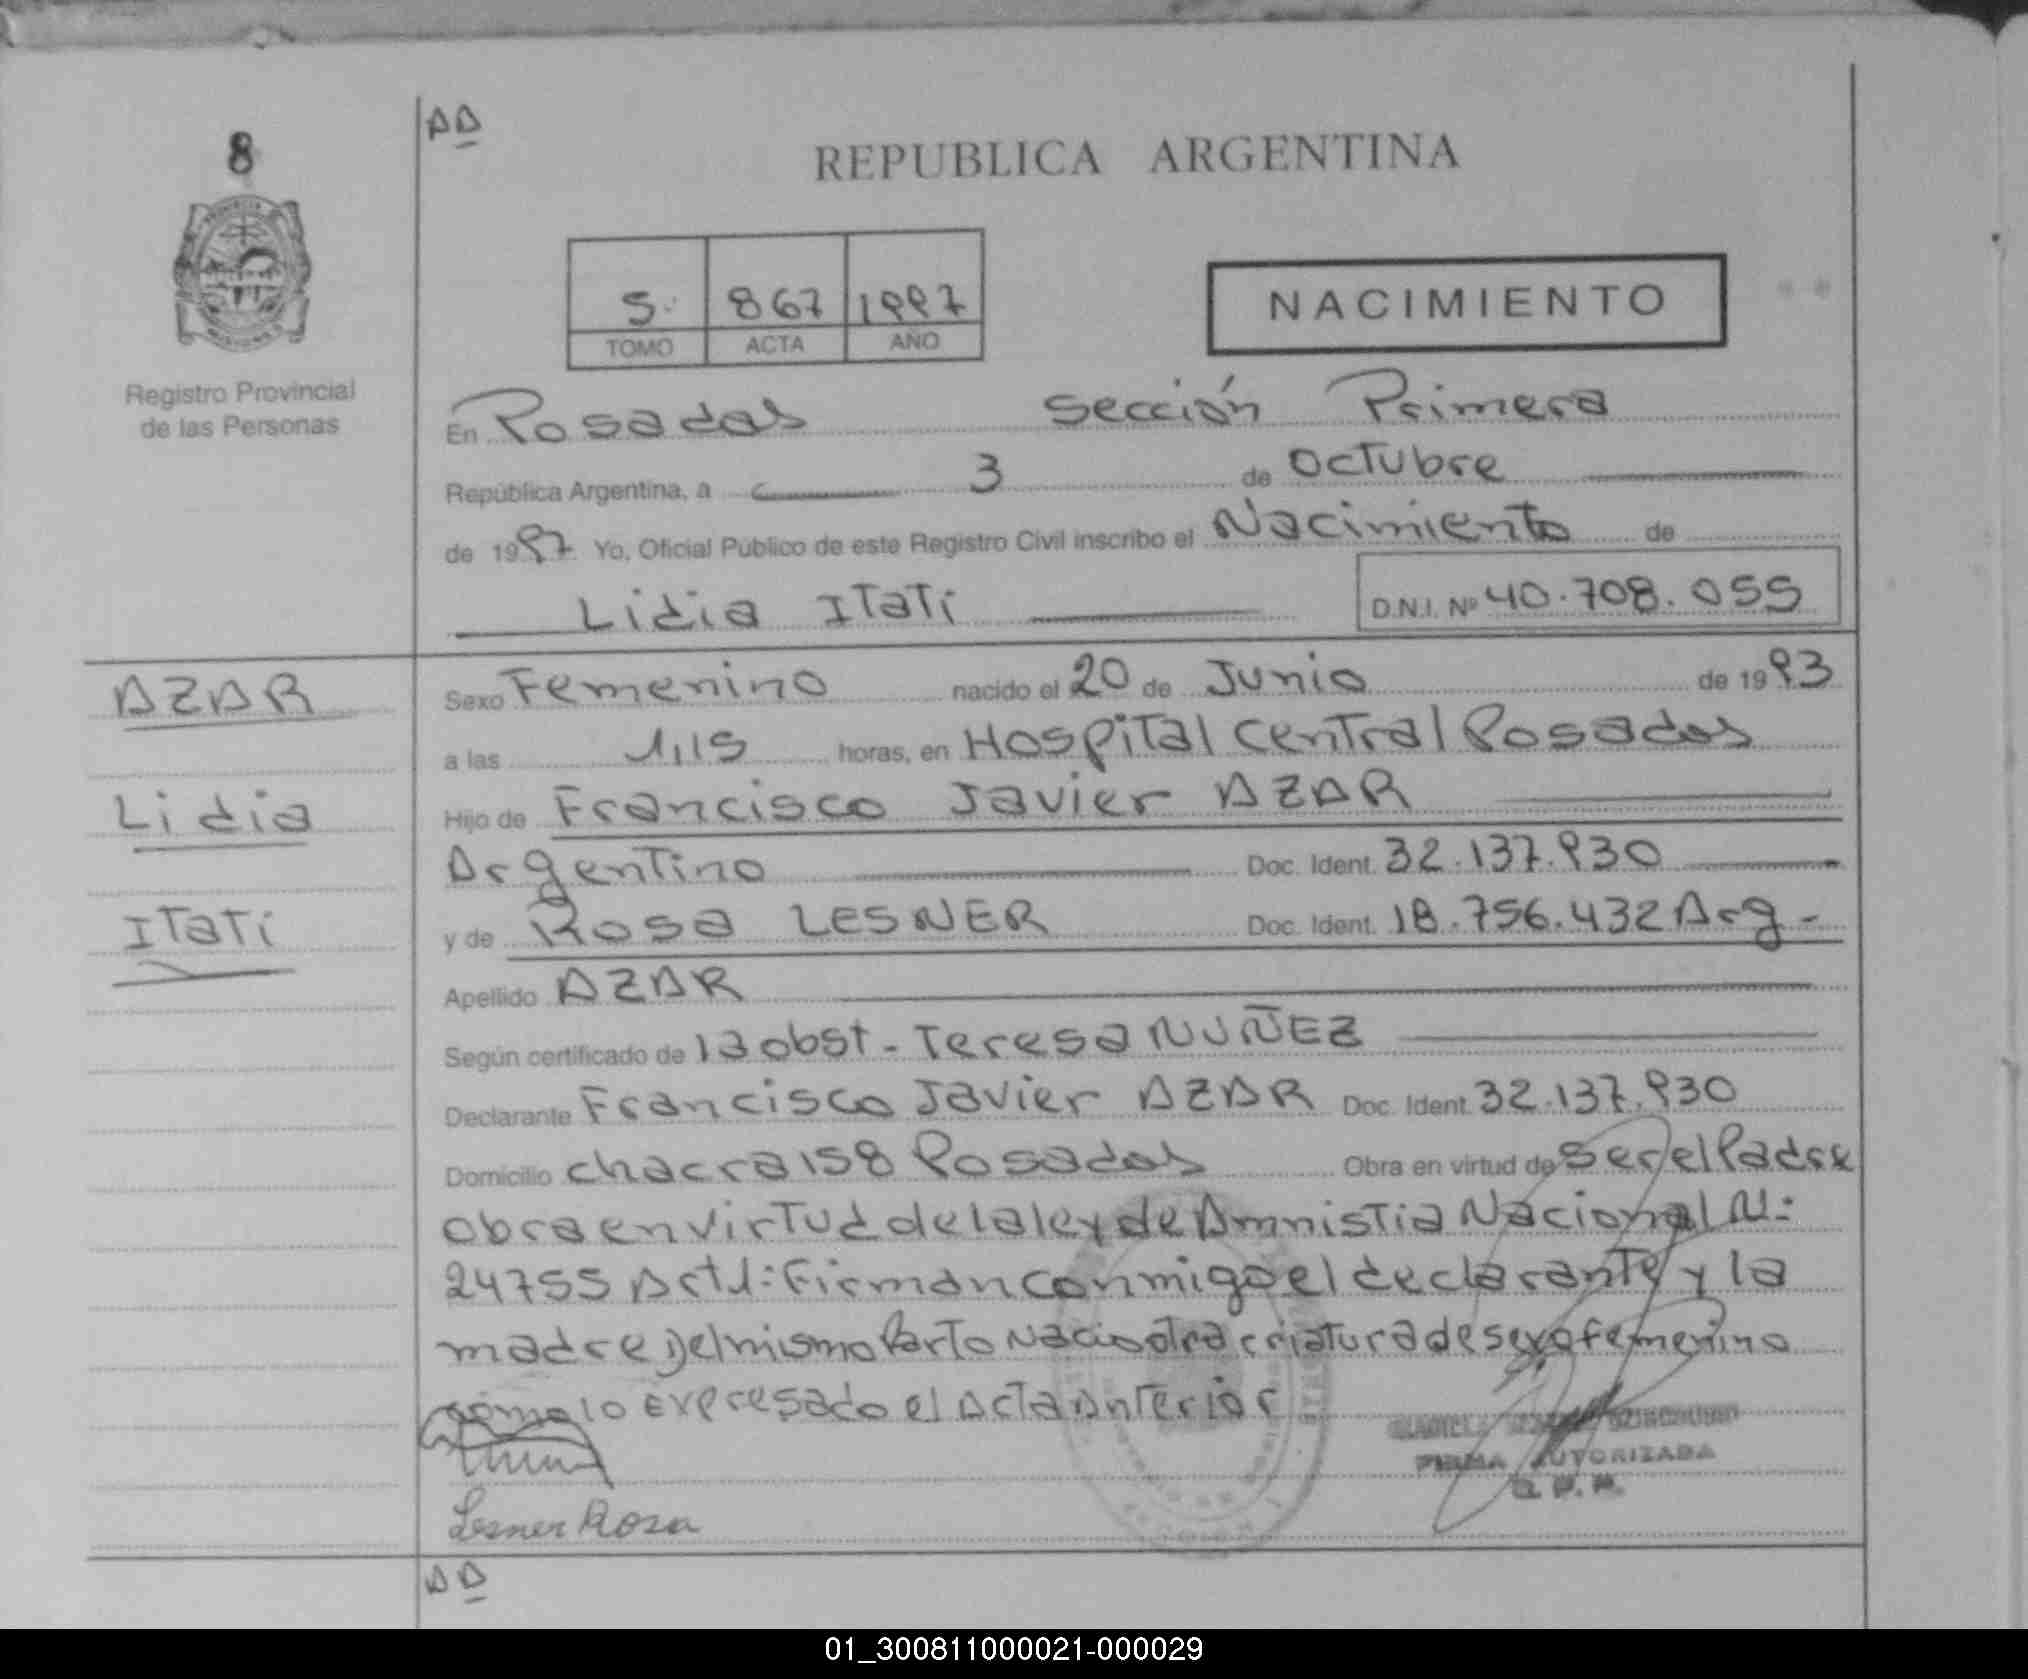 AA
8
REPUBLICA ARGENTINA
5. 867 1997
TOMO ACTA AÑO
NACIMIENTO
Registro Provincial
de las Personas
En Posadas Sección Primera
República Argentina, a 3 de Octubre
de 1997 Yo, Oficial Público de este Registro Civil inscribo el Nacimiento de
Lidia Itatí D.N.I. Nº 40.708.055
AZAR
Lidia
Itatí
Sexo Femenino nacido el 20 de Junio de 1993
a las 1,15 horas, en Hospital Central Posadas
Hijo de Francisco Javier AZAR
Argentino Doc. Ident. 32.137.930
y de Rosa LESNER Doc. Ident. 18.756.432 Arg-
Apellido AZAR
Según certificado de la obst- Teresa NUÑEZ
Declarante Francisco Javier AZAR Doc. Ident. 32.137.930
Domicilio chacra 158 Posadas Obra en virtud de ser el Padre
obra en virtud de la ley de Amnistia Nacional N:
24755 Art 1: Firman conmigo el declarante y la
madre Del mismo Parto Nacio otra criatura de sexo femenino
como lo expresado el Acta Anterior
Lesner Rosa
FIRMA AUTORIZADA
AA
01_300811000021-000029